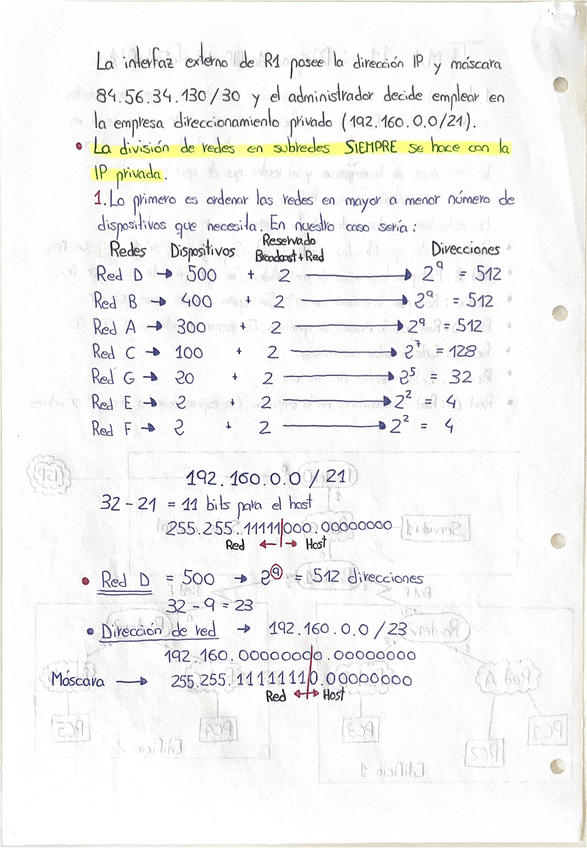 La interfaz externa de R1 posee la dirección IP y máscara
84.56.34.130/30 y el administrador decide emplear en
la empresa direccionamiento privado (192.160.0.0/21).
• La división de redes en subredes SIEMPRE se hace con la
IP privada.
1. Lo primero es ordenar las redes en mayor a menor número de
dispositivos que necesita. En nuestro caso sería:
Redes Dispositivos Reservado Broadcast+Red Direcciones
Red D → 500 + 2 → 2⁹ = 512
Red B → 400 + 2 → 2⁹ = 512
Red A → 300 + 2 → 2⁹ = 512
Red C → 100 + 2 → 2⁷ = 128
Red G → 20 + 2 → 2⁵ = 32
Red E → 2 + 2 → 2² = 4
Red F → 2 + 2 → 2² = 4
192.160.0.0/21
32-21 = 11 bits para el host
255.255.11111|000.00000000
Red ← → Host
• Red D = 500 → 2⁹ = 512 direcciones
32-9 = 23
• Dirección de red → 192.160.0.0/23
192.160.00000000.00000000
Máscara → 255.255.11111110.00000000
Red ↔ Host